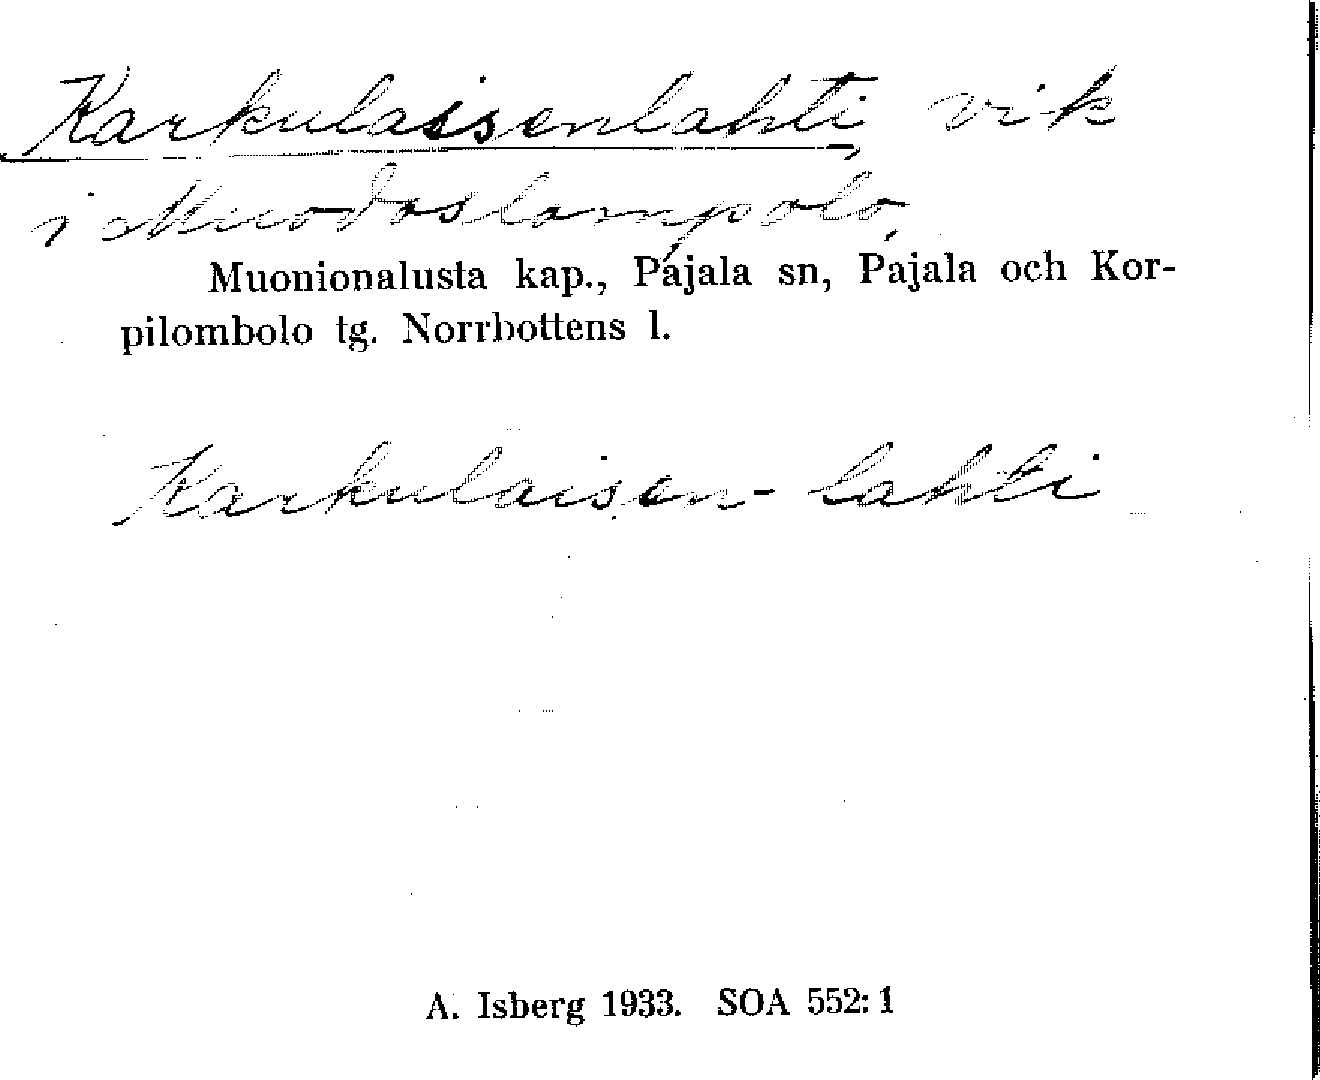 Karkulaisenlahti, vik
i Muodoslompolo,
Muonionalusta kap., Pajala sn, Pajala och Kor-
pilombolo tg. Norrbottens l.
Karkulaisen-lahti
A. Isberg 1933. SOA 552:1